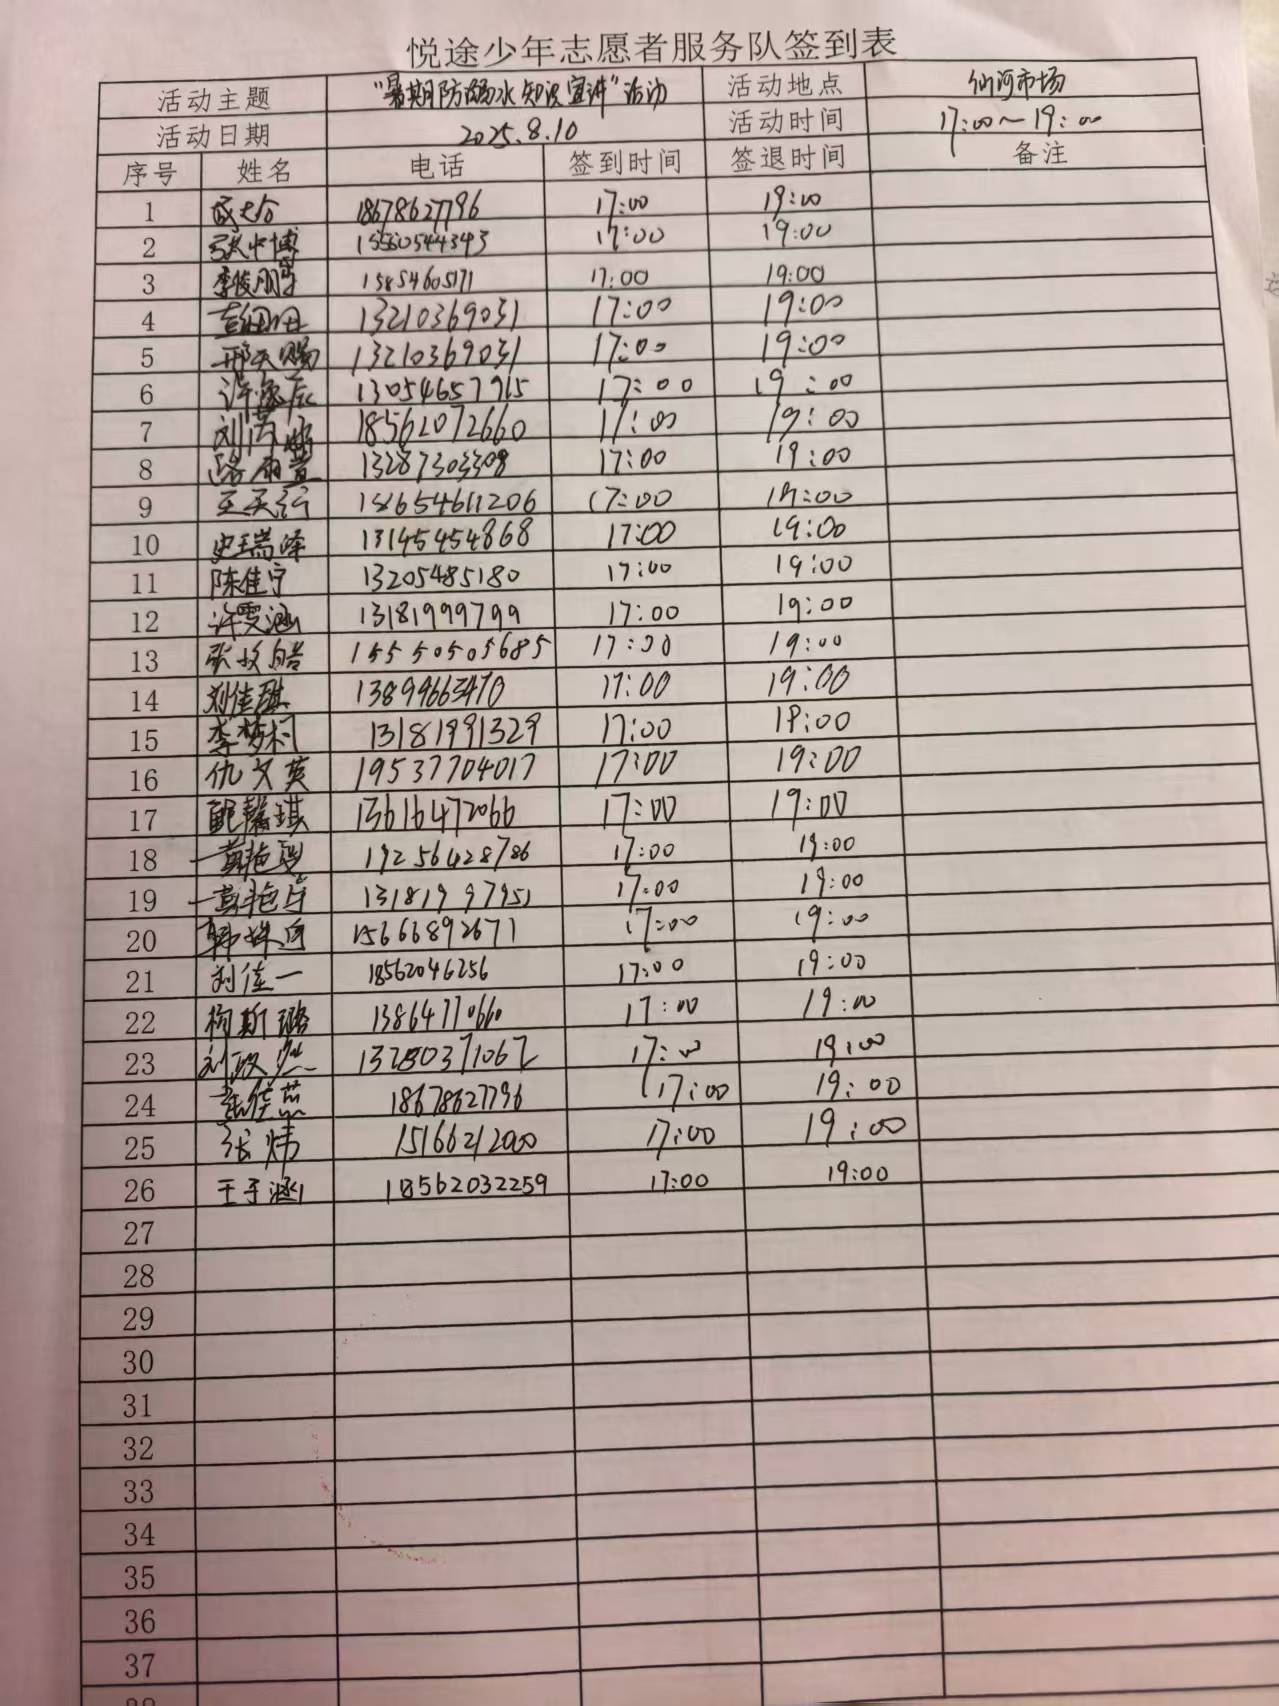 悦途少年志愿者服务队签到表
活动主题 "暑期防溺水知识宣讲"活动 活动地点 仙河市场
活动日期 2025.8.10 活动时间 17:00~19:00
序号 姓名 电话 签到时间 签退时间 备注
1 18678627796 17:00 19:00
2 张中博 15560544343 17:00 19:00
3 李俊朋 15854605171 17:00 19:00
4 13210369031 17:00 19:00
5 邢天赐 13210369031 17:00 19:00
6 许逸辰 13054657915 17:00 19:00
7 刘 18562072660 17:00 19:00
8 路雨萱 13287303308 17:00 19:00
9 王天行 17:00 19:00
10 史瑞泽 13145454868 17:00 19:00
11 陈佳宁 13205485180 17:00 19:00
12 许雯涵 13181999799 17:00 19:00
13 张 皓 15550505685 17:00 19:00
14 刘佳琪 13899663470 17:00 19:00
15 李梦柯 13181991329 17:00 19:00
16 仇文英 19537704017 17:00 19:00
17 鲍馨琪 13616472066 17:00 19:00
18 19256428786 17:00 19:00
19 13181997951 17:00 19:00
20 韩 15666892671 17:00 19:00
21 刘佳一 18562046256 17:00 19:00
22 柯斯璐 13864770660 17:00 19:00
23 刘政燃 13280371067 17:00 19:00
24 18678627796 17:00 19:00
25 张炜 15166212000 17:00 19:00
26 王子涵 18562032259 17:00 19:00
27
28
29
30
31
32
33
34
35
36
37
38